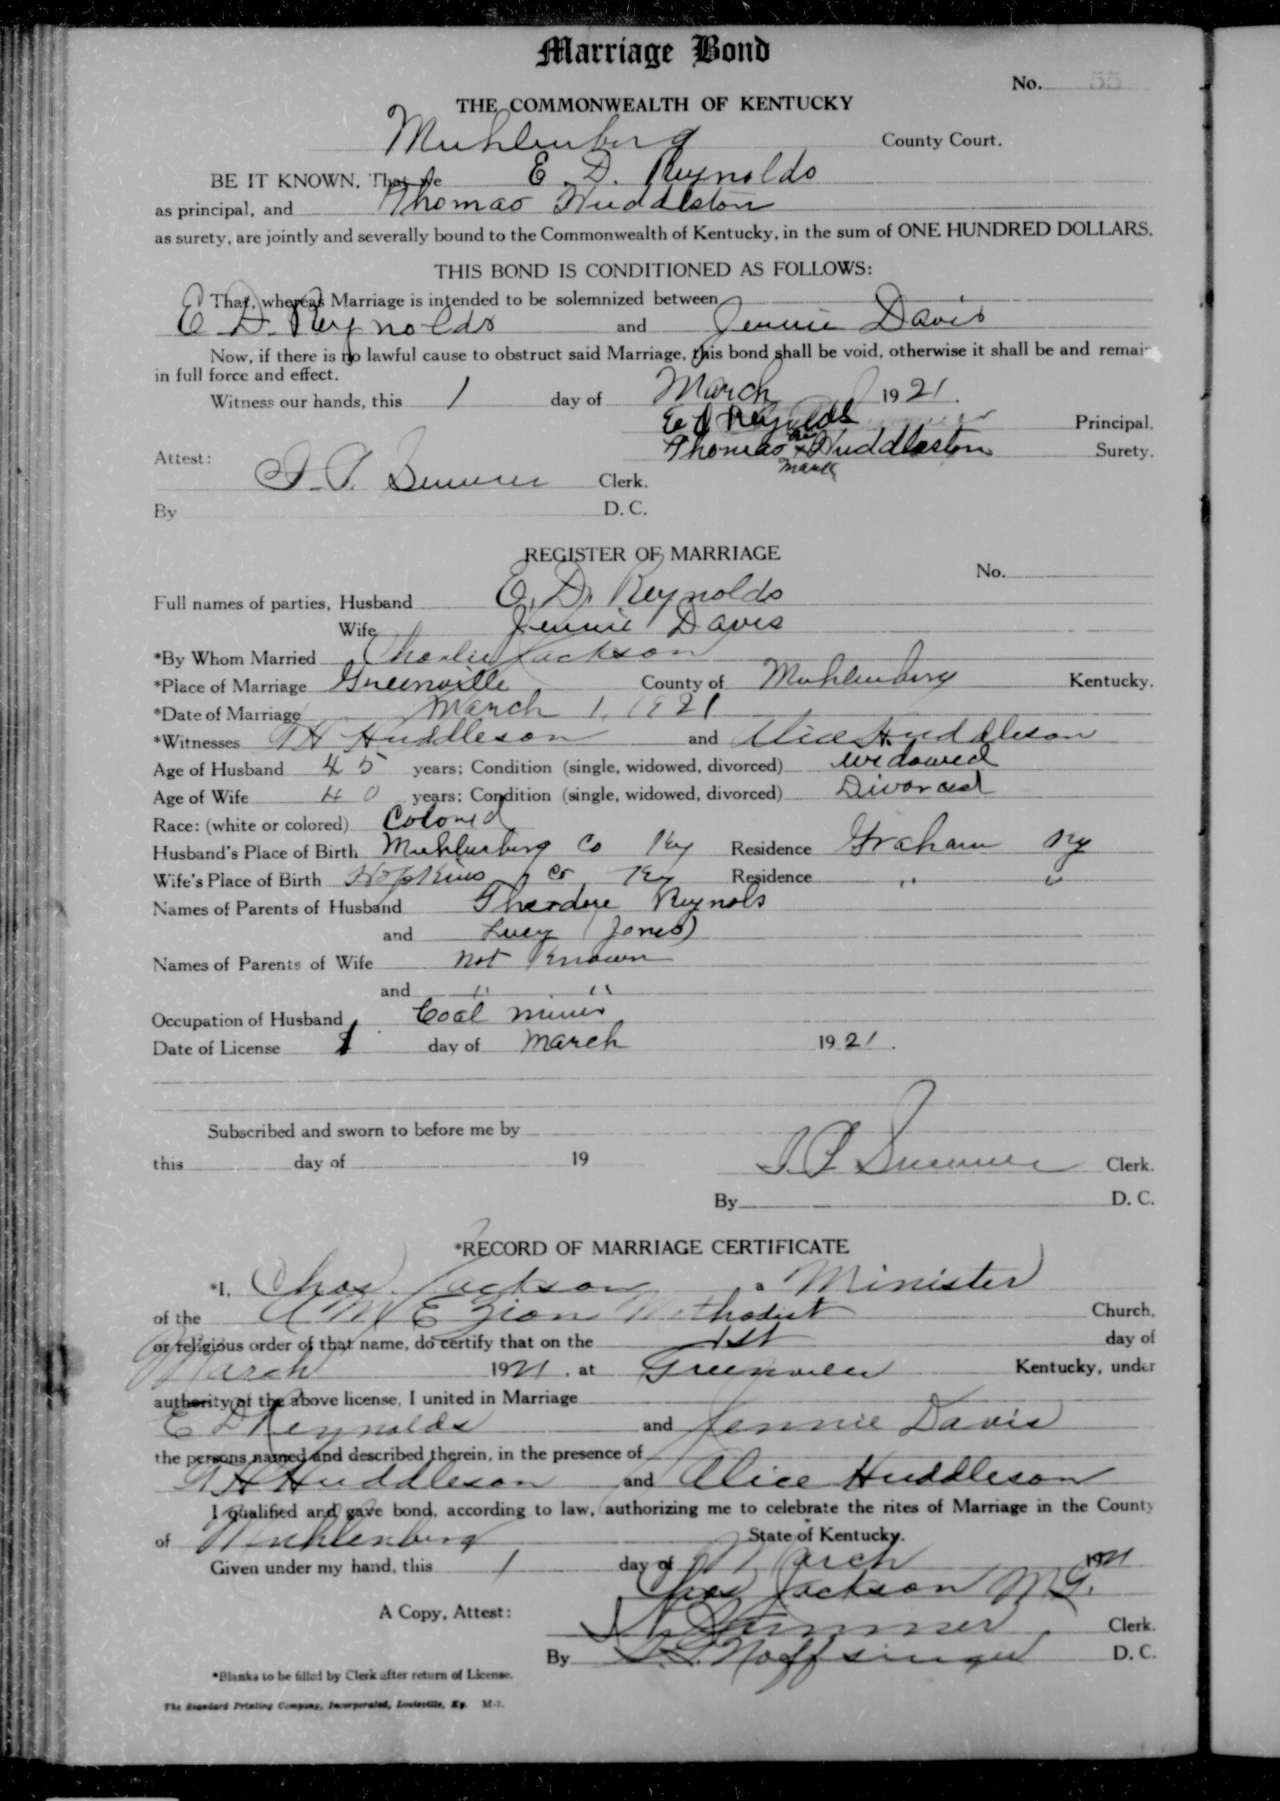 Marriage Bond
No. 55
THE COMMONWEALTH OF KENTUCKY
Muhlenberg County Court.
BE IT KNOWN, That we E. D. Reynolds
as principal, and Thomas Huddleston
as surety, are jointly and severally bound to the Commonwealth of Kentucky, in the sum of ONE HUNDRED DOLLARS.
THIS BOND IS CONDITIONED AS FOLLOWS:
That, whereas Marriage is intended to be solemnized between
E. D. Reynolds and Jennie Davis
Now, if there is no lawful cause to obstruct said Marriage, this bond shall be void, otherwise it shall be and remain
in full force and effect.
Witness our hands, this 1 day of March 1921.
E D Reynolds Principal.
Thomas his x mark Huddleston Surety.
Attest:
Clerk.
By D. C.
REGISTER OF MARRIAGE
No.
Full names of parties, Husband E. D. Reynolds
Wife Jennie Davis
*By Whom Married Charlie Jackson
*Place of Marriage Greenville County of Muhlenberg Kentucky.
*Date of Marriage March 1, 1921
*Witnesses T H Huddleson and Alice Huddleson
Age of Husband 45 years; Condition (single, widowed, divorced) widowed
Age of Wife 40 years; Condition (single, widowed, divorced) Divorced
Race: (white or colored) Colored
Husband's Place of Birth Muhlenberg Co Ky Residence Graham Ky
Wife's Place of Birth Hopkins Co Ky Residence " "
Names of Parents of Husband Theodore Reynols
and Lucy (Jones)
Names of Parents of Wife not Known
and " "
Occupation of Husband Coal miner
Date of License 1 day of March 1921.
Subscribed and sworn to before me by
this day of 19
Clerk.
By D. C.
*RECORD OF MARRIAGE CERTIFICATE
*I, Chas. Jackson, a Minister
of the A M E Zion Methodist Church,
or religious order of that name, do certify that on the 1st day of
March 1921, at Greenville Kentucky, under
authority of the above license, I united in Marriage
E D Reynolds and Jennie Davis
the persons named and described therein, in the presence of
T H Huddleson and Alice Huddleson
I qualified and gave bond, according to law, authorizing me to celebrate the rites of Marriage in the County
of Muhlenberg State of Kentucky.
Given under my hand, this 1 day of March 1921
Chas Jackson M G.
A Copy, Attest:
Summer Clerk.
By Noffsinger D. C.
*Blanks to be filled by Clerk after return of License.
The Standard Printing Company, Incorporated, Louisville, Ky. M-1.